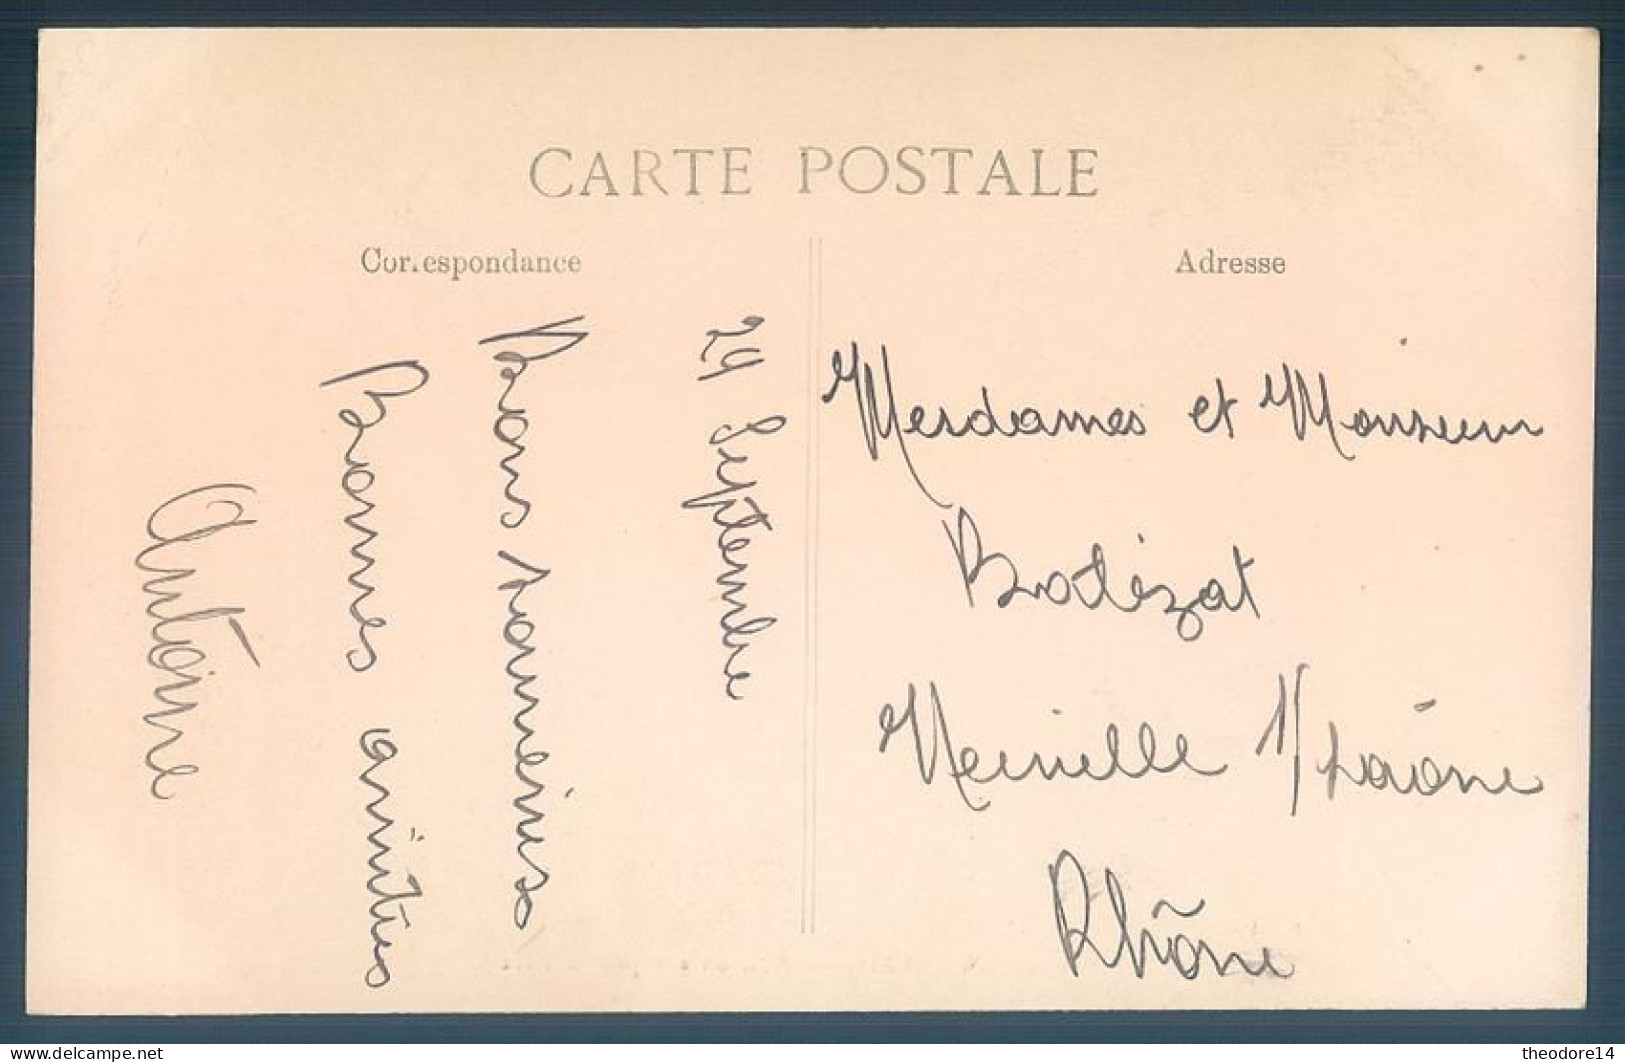 CARTE POSTALE
Correspondance
Adresse
29 Septembre
Bons souvenirs
Bonnes amitiés
Antoine
Mesdames et Monsieur
Batézat
Neuville s/ Saône
Rhône
www.delcampe.net
theodore14